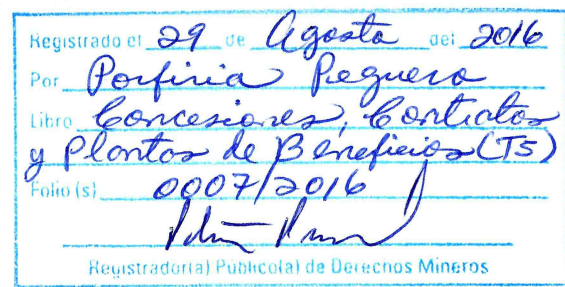 Registrado el 29 de Agosto del 2016
Por Porfiria Peguero
Libro Concesiones, Contratos
y Plantas de Beneficios (T5)
Folio (s) 0007/2016
Registrador(a) Público(a) de Derechos Mineros